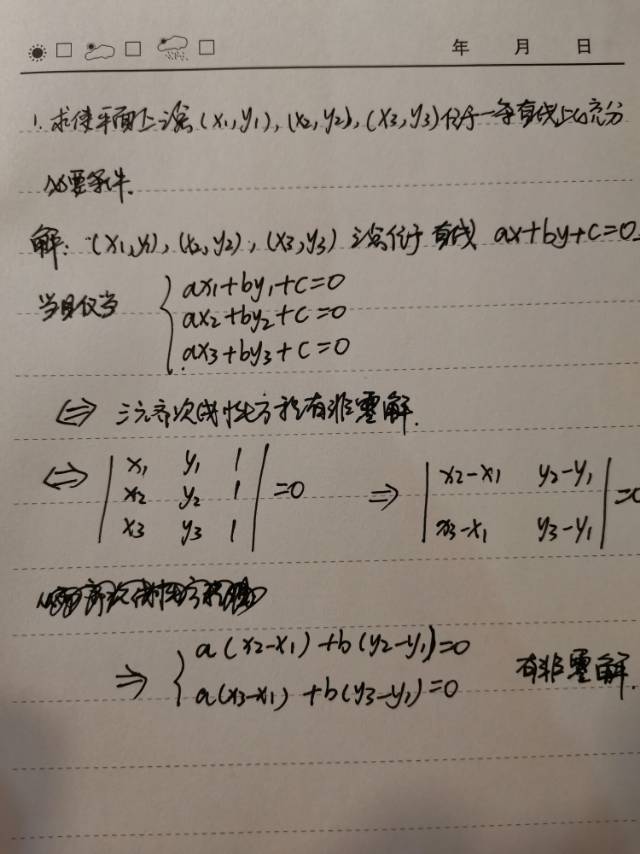 年 月 日
1. 求使平面上三点(x₁,y₁), (x₂,y₂), (x₃,y₃)位于一条直线上的充分
必要条件.
解: (x₁,y₁), (x₂,y₂), (x₃,y₃) 三点位于直线 ax+by+c=0
当且仅当 { ax₁+by₁+c=0
ax₂+by₂+c=0
ax₃+by₃+c=0
⇔ 三元齐次线性方程有非零解.
⇔ | x₁ y₁ 1 | =0 ⇒ | x₂-x₁ y₂-y₁ | =0
x₂ y₂ 1
x₃ y₃ 1 x₃-x₁ y₃-y₁
⇒ { a(x₂-x₁)+b(y₂-y₁)=0 有非零解.
a(x₃-x₁)+b(y₃-y₁)=0